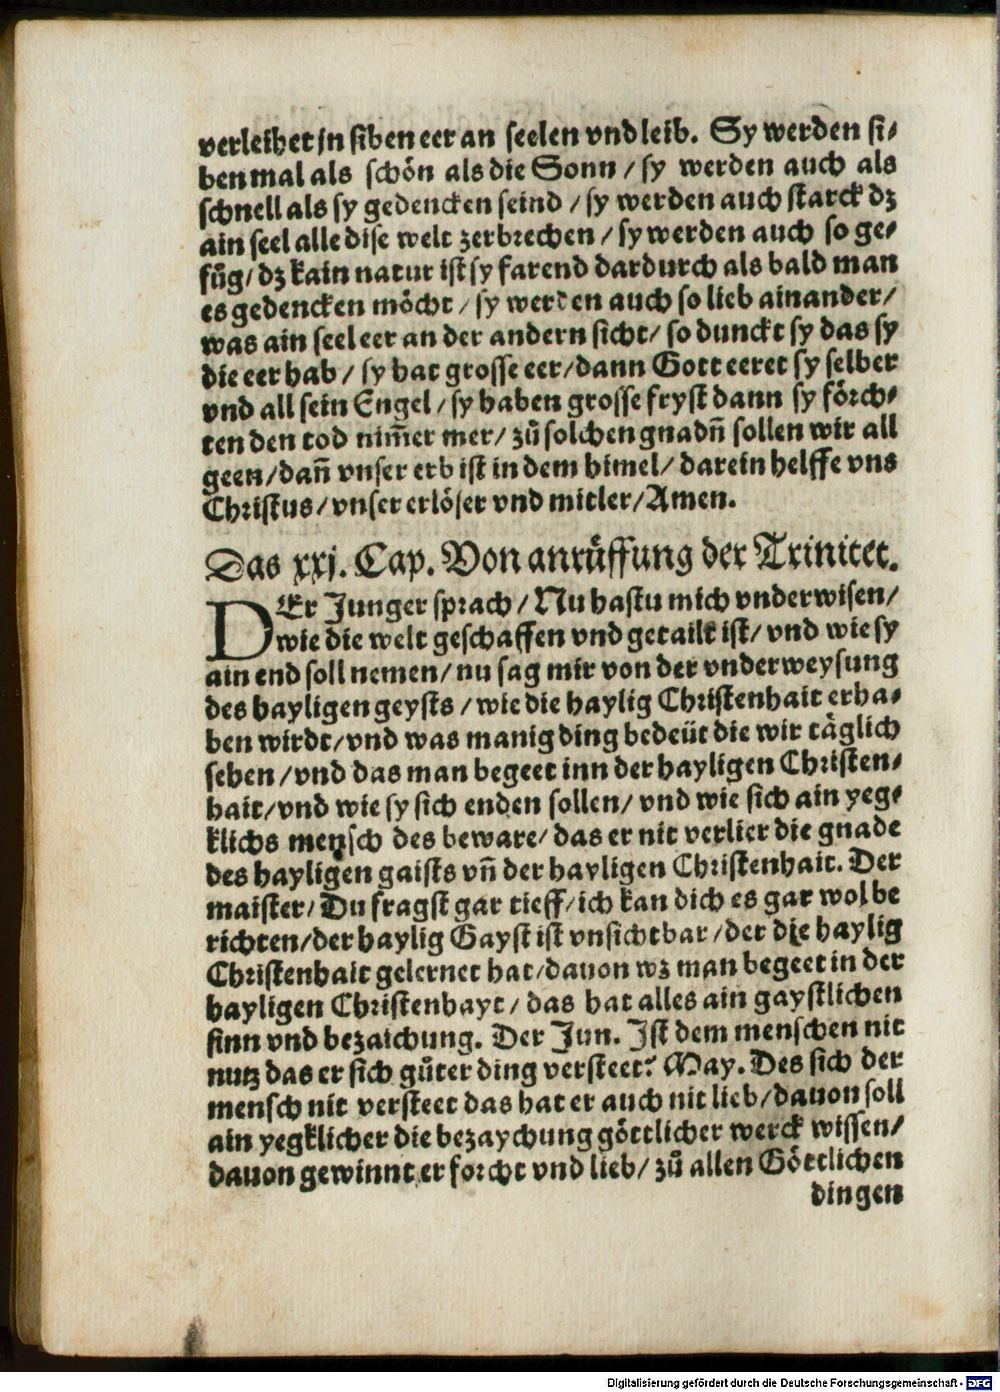 verleihet jn siben eer an seelen vnd leib. Sy werden si⸗
ben mal als schön als die Sonn / sy werden auch als
schnell als sy gedencken seind / sy werden auch starck dz
ain seel alle dise welt zerbrechen / sy werden auch so ge⸗
fuͤg / dz kain natur ist sy farend dardurch als bald man
es gedencken möcht / sy werden auch so lieb ainander /
was ain seel eer an der andern sicht / so dunckt sy das sy
die eer hab / sy hat grosse eer / dann Gott eeret sy selber
vnd all sein Engel / sy haben grosse fryst dann sy förch⸗
ten den tod nim̃er mer / zuͦ solchen gnadn̄ sollen wir all
geen / dan̄ vnser erb ist in dem himel / darein helffe vns
Christus / vnser erlöser vnd mitler / Amen.
Das xxj. Cap. Von anruͤffung der Trinitet.
DEr Junger sprach / Nu hastu mich vnderwisen /
wie die welt geschaffen vnd getailt ist / vnd wie sy
ain end soll nemen / nu sag mir von der vnderweysung
des hayligen geysts / wie die haylig Christenhait erha⸗
ben wirdt / vnd was manig ding bedeüt die wir täglich
sehen / vnd das man begeet inn der hayligen Christen⸗
hait / vnd wie sy sich enden sollen / vnd wie sich ain yeg⸗
klichs mensch des beware / das er nit verlier die gnade
des hayligen gaists vn̄ der hayligen Christenhait. Der
maister / Du fragst gar tieff / ich kan dich es gar wol be
richten / der haylig Gayst ist vnsichtbar / der die haylig
Christenhait gelernet hat / dauon wz man begeet in der
hayligen Christenhayt / das hat alles ain gaystlichen
sinn vnd bezaichung. Der Jun. Ist dem menschen nit
nutz das er sich guͤter ding versteet? May. Des sich der
mensch nit versteet das hat er auch nit lieb / dauon soll
ain yegklicher die bezaychung göttlicher werck wissen /
dauon gewinnt er forcht vnd lieb / zuͦ allen Göttlichen
dingen
Digitalisierung gefördert durch die Deutsche Forschungsgemeinschaft - DFG